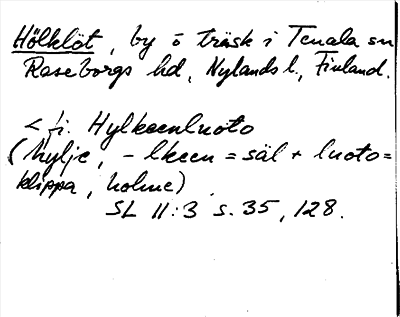 Hölklöt, by ö träsk i Tenala sn
Raseborgs hd, Nylands l., Finland.
< fi. Hylkeenluoto
(hylje, -lkeen = säl + luoto =
klippa, holme)
SL 11:3 s. 35, 128.